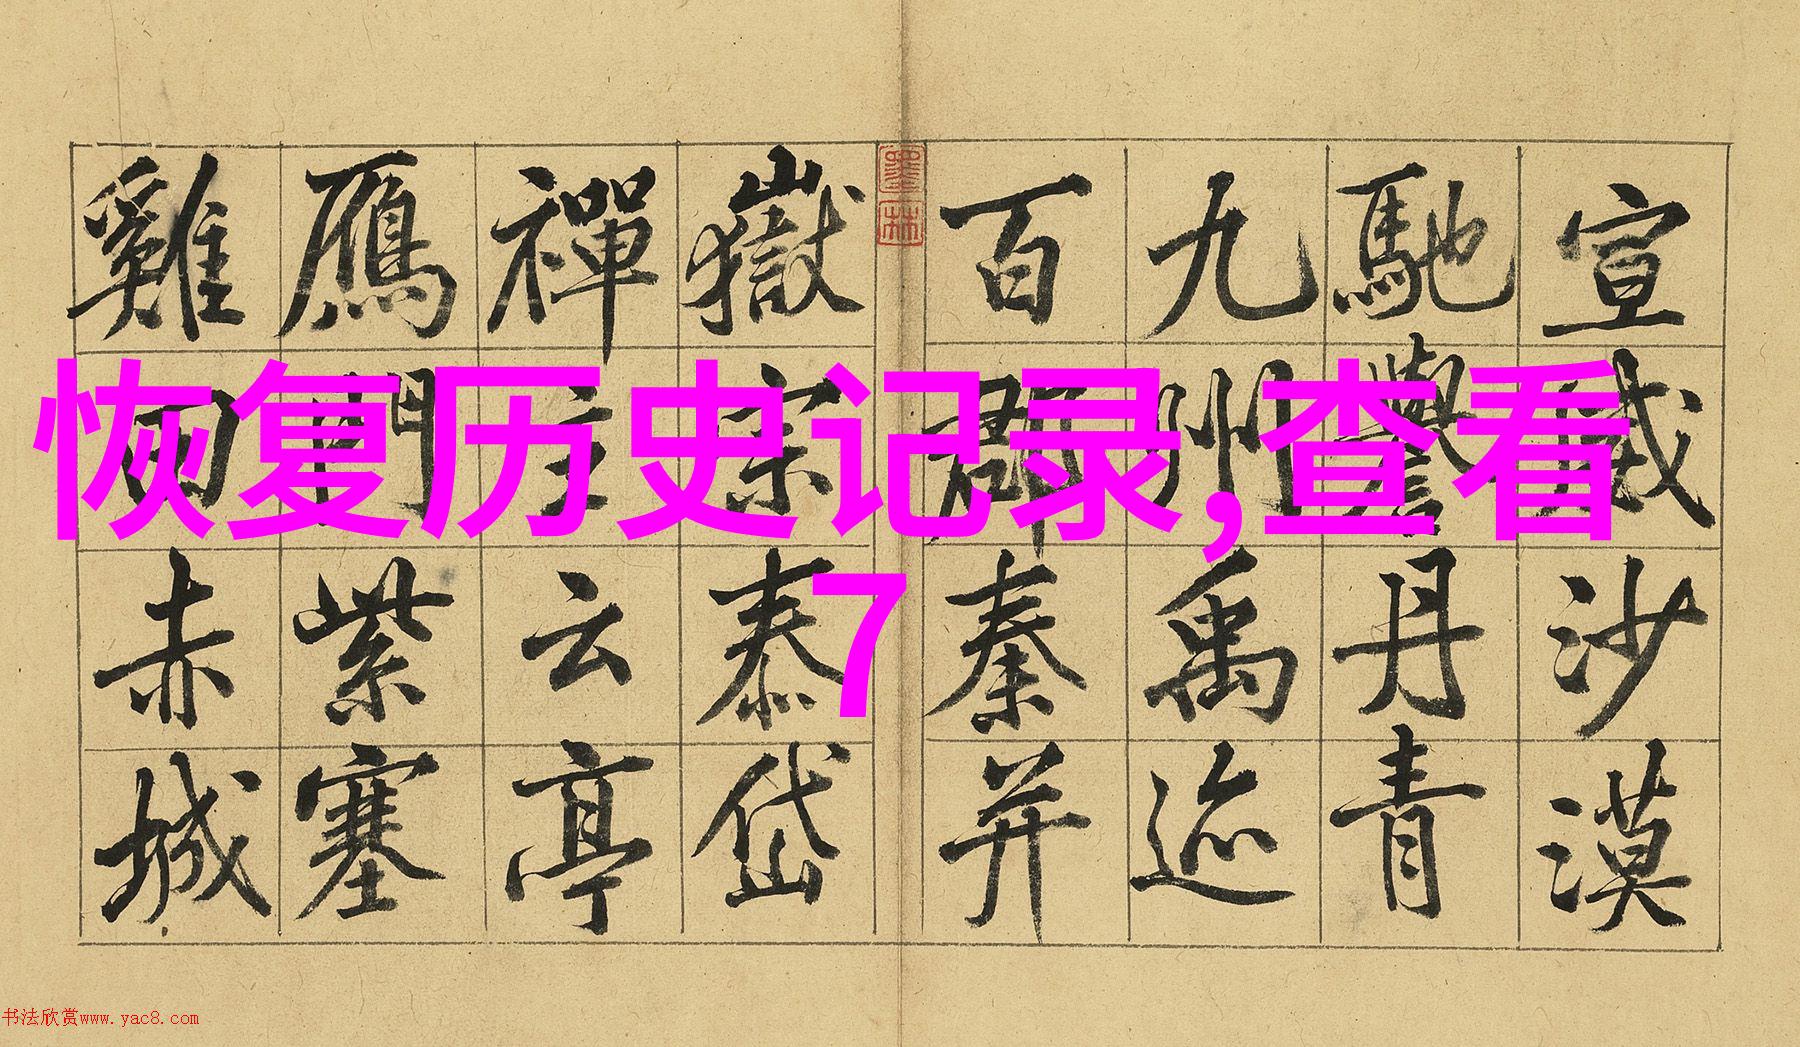 宣威沙漠
馳譽丹青
九州禹迹
百郡秦并
嶽宗泰岱
禪主云亭
鴈門紫塞
雞田赤城
墨林
恢复历史记录,查看
7
书法欣赏www.yac8.com